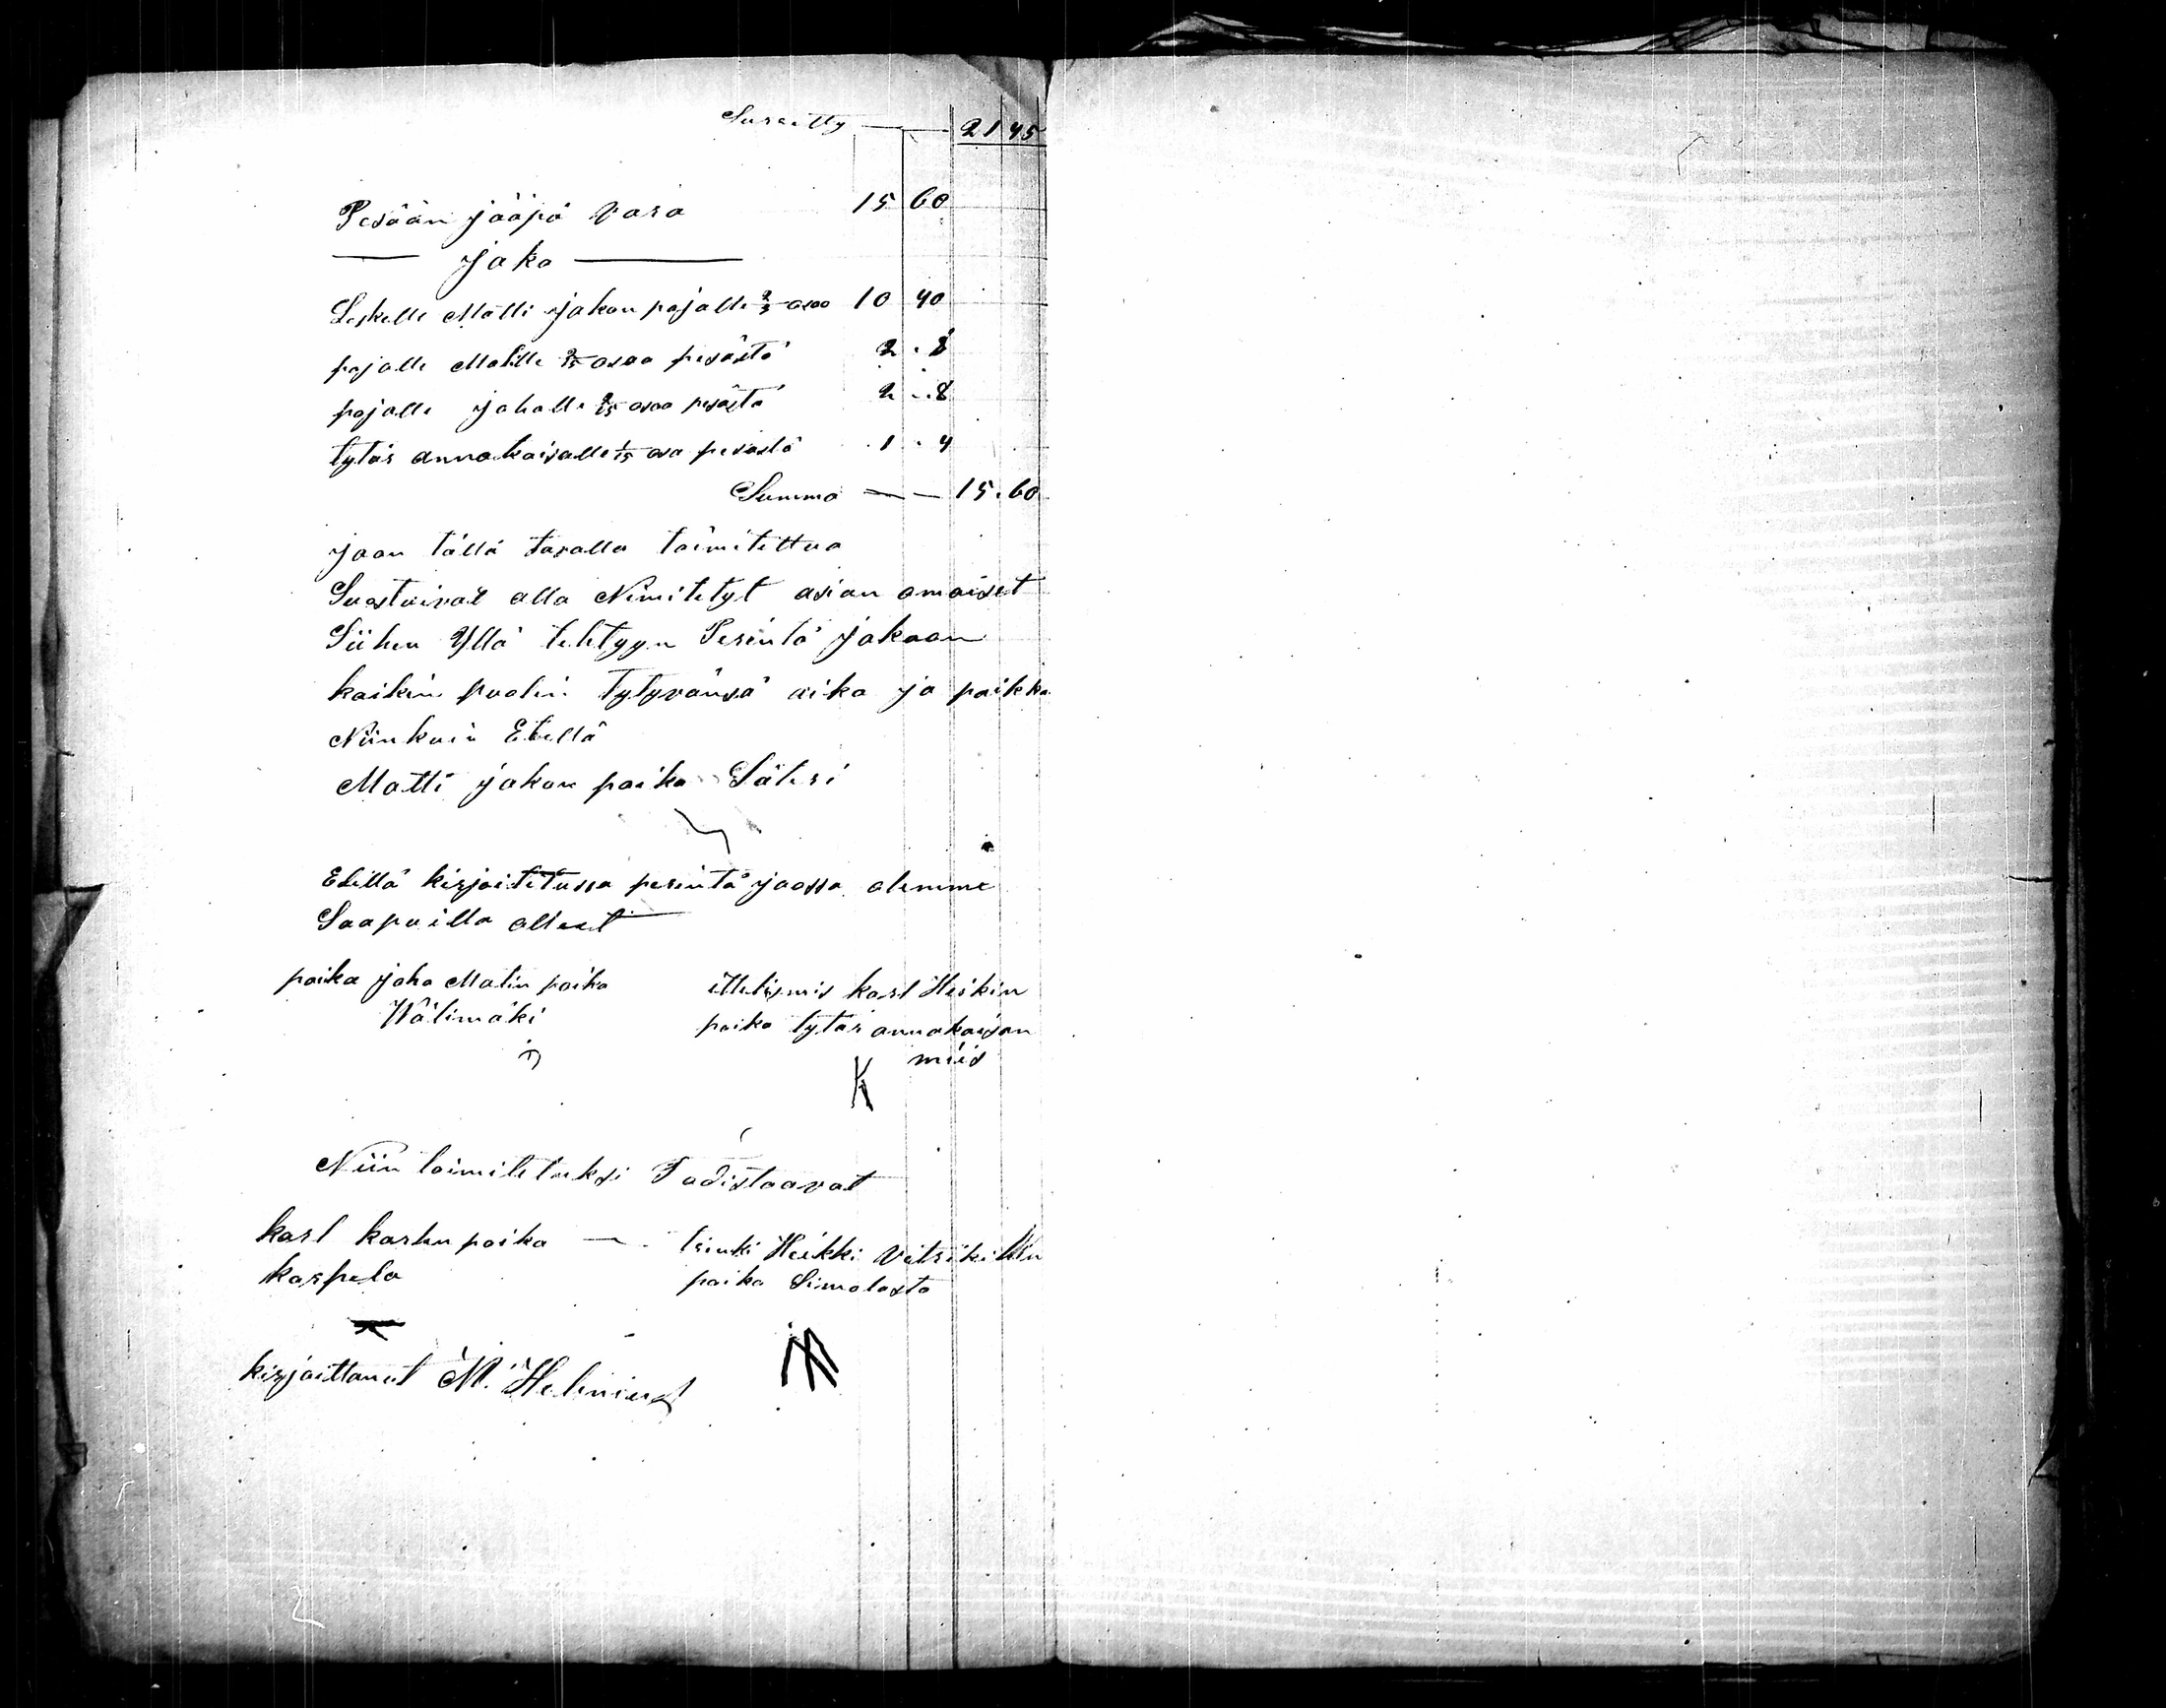 Siirretty — — 21 45
Pesään jääpä vara 15 60
— Jako —
Leskelle Matti Jakon pojalle 2/3 osaa 10 40
pojalle Matille 2/15 osaa pesästä 2 . 8
pojalle Johalle 2/15 osaa pesästä 2 . 8
tytär annakaisalle 1/15 osa pesästä 1 . 4
Summa — — 15 . 60
Jaon tällä tavalla toimitettua
Suostuivat alla Nimitetyt asian omaiset
Siihen Yllä tehtyyn Perintö Jakoon
kaikin puolin Tytyvänsä aika ja paikka
Niinkuin Edellä
Matti Jakon poika
Edellä kirjoitetussa perintö jaossa olemme
Saapuilla olleet
poika Joha Matin poika
Wälimäki
karl Heikin
poika tytär annakaisan
mies
K
Niin toimitetuksi Todistaavat
karl karlin poika —
karpela
trinki Heikki
poika Simolasta
kirjoittanut M. Helenius